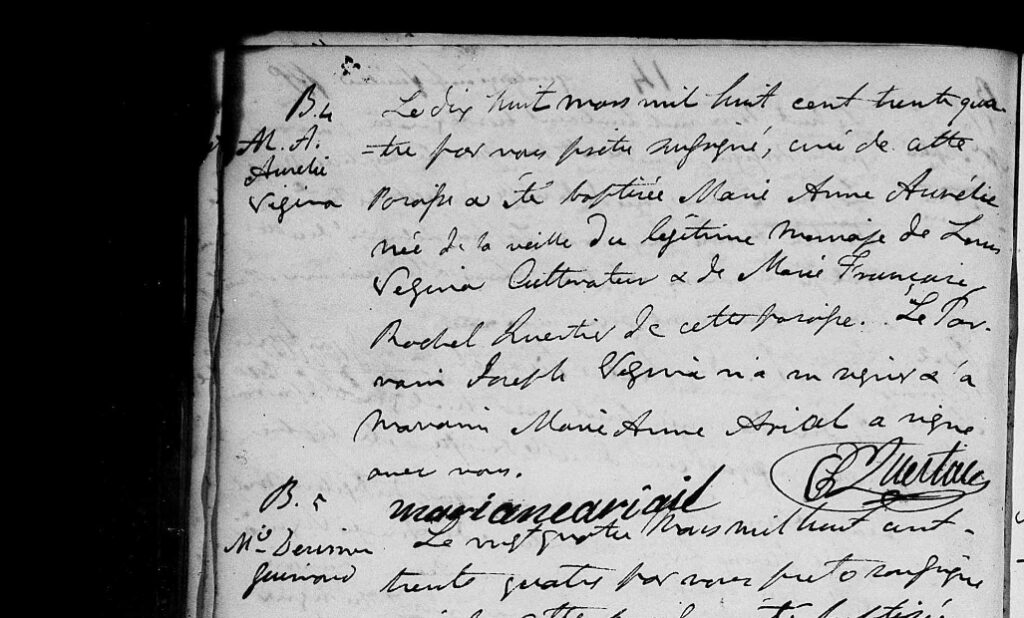 B. 4
M. A.
Aurelie
Vegina
Le dix huit mars mil huit cent trente qua
=tre par nous prêtre soussigné, curé de cette
Paroisse a été baptisée Marie Anne Aurélie
née de la veille du légitime mariage de Louis
Vegina Cultivateur & de Marie Françoise
Rachel de cette paroisse. Le Par-
rain Joseph Vegina n'a su signer & la
marraine Marie Anne Ariail a signé
avec nous.
marianeariail
B. 5
Le vingt quatre mars mil huit cent
trente quatre par nous prêtre soussigné